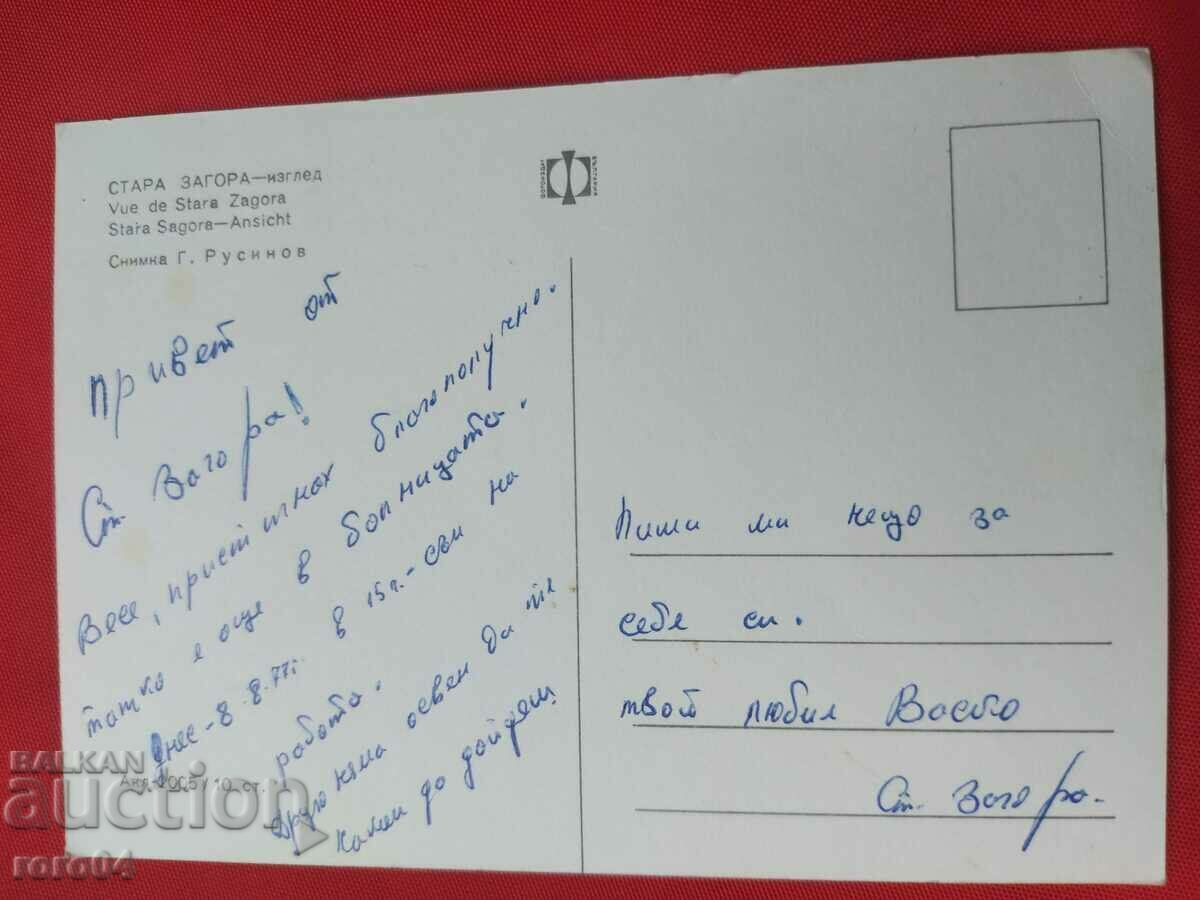 СТАРА ЗАГОРА—изглед
Vue de Stara Zagora
Stara Sagora—Ansicht
Снимка Г. Русинов
Привет от
Ст. Загора!
Весе, пристигнах благополучно.
татко е още в болницата.
Днес - 8.8.77г. в 15ч. - съм на
работа.
Друго няма освен да те
каня да дойдеш
Акл-2005/10 ст.
Пиши ми нещо за
себе си.
твой любил Васко
Ст. Загора.
BALKAN
auction
roro04